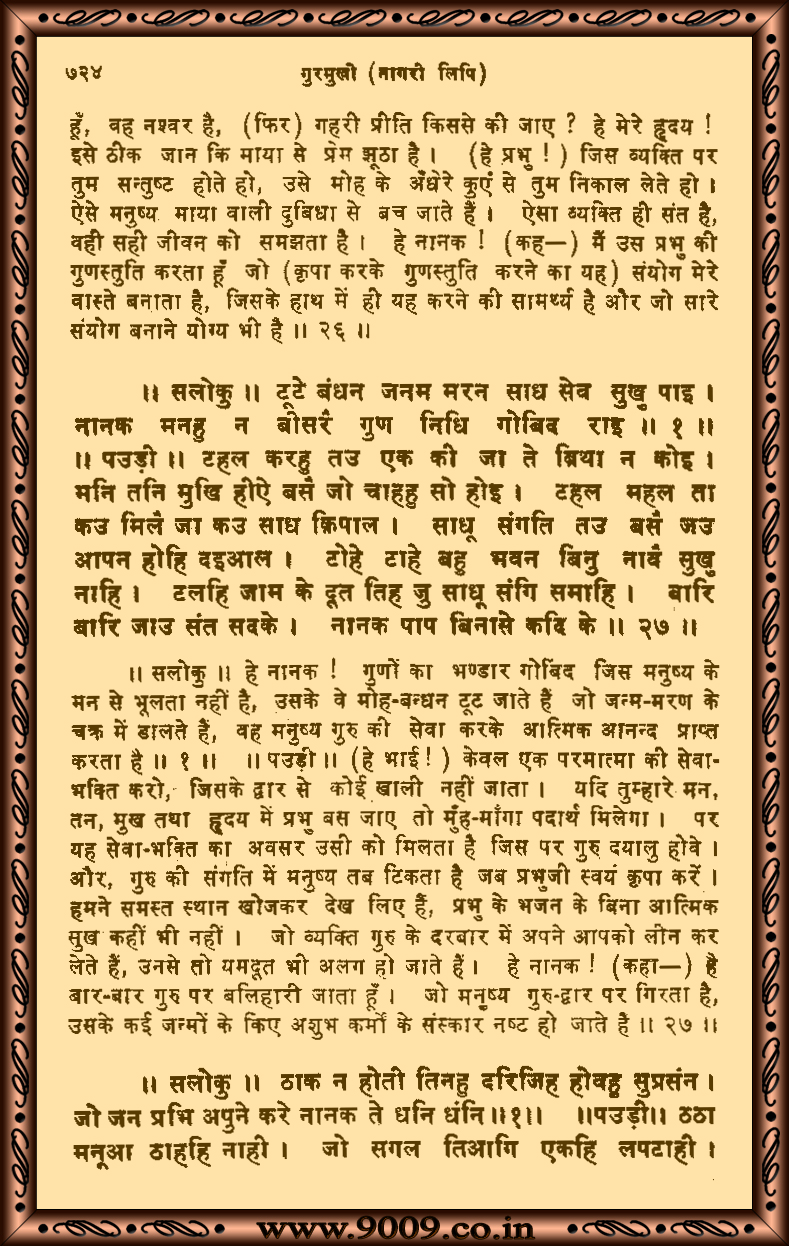 ७२४ गुरमुखी (नागरी लिपि)
हूँ, वह नश्वर है, (फिर) गहरी प्रीति किससे की जाए ? हे मेरे हृदय !
इसे ठीक जान कि माया से प्रेम झूठा है । (हे प्रभु ! ) जिस व्यक्ति पर
तुम सन्तुष्ट होते हो, उसे मोह के अँधेरे कुएं से तुम निकाल लेते हो ।
ऐसे मनुष्य माया वाली दुबिधा से बच जाते हैं । ऐसा व्यक्ति ही संत है,
वही सही जीवन को समझता है । हे नानक ! (कह—) मैं उस प्रभु की
गुणस्तुति करता हूँ जो (कृपा करके गुणस्तुति करने का यह) संयोग मेरे
वास्ते बनाता है, जिसके हाथ में ही यह करने की सामर्थ्य है और जो सारे
संयोग बनाने योग्य भी है ॥ २६ ॥
॥ सलोकु ॥ टूटे बंधन जनम मरन साध सेव सुखु पाइ ।
नानक मनहु न बीसरै गुण निधि गोबिद राइ ॥ १ ॥
॥ पउड़ी ॥ टहल करहु तउ एक की जा ते ब्रिथा न कोइ ।
मनि तनि मुखि हीऐ बसै जो चाहहु सो होइ । टहल महल ता
कउ मिलै जा कउ साध क्रिपाल । साधू संगति तउ बसै जउ
आपन होहि दइआल । टोहे टाहे बहु भवन बिनु नावै सुखु
नाहि । टलहि जाम के दूत तिह जु साधू संगि समाहि । बारि
बारि जाउ संत सदके । नानक पाप बिनासे कदि के ॥ २७ ॥
॥ सलोकु ॥ हे नानक ! गुणों का भण्डार गोबिंद जिस मनुष्य के
मन से भूलता नहीं है, उसके वे मोह-बन्धन टूट जाते हैं जो जन्म-मरण के
चक्र में डालते हैं, वह मनुष्य गुरु की सेवा करके आत्मिक आनन्द प्राप्त
करता है ॥ १ ॥ ॥ पउड़ी ॥ (हे भाई ! ) केवल एक परमात्मा की सेवा-
भक्ति करो, जिसके द्वार से कोई खाली नहीं जाता । यदि तुम्हारे मन,
तन, मुख तथा हृदय में प्रभु बस जाए तो मुँह-माँगा पदार्थ मिलेगा । पर
यह सेवा-भक्ति का अवसर उसी को मिलता है जिस पर गुरु दयालु होवे ।
और, गुरु की संगति में मनुष्य तब टिकता है जब प्रभुजी स्वयं कृपा करें ।
हमने समस्त स्थान खोजकर देख लिए हैं, प्रभु के भजन के बिना आत्मिक
सुख कहीं भी नहीं । जो व्यक्ति गुरु के दरबार में अपने आपको लीन कर
लेते हैं, उनसे तो यमदूत भी अलग हो जाते हैं । हे नानक ! (कहा—) है
बार-बार गुरु पर बलिहारी जाता हूँ । जो मनुष्य गुरु-द्वार पर गिरता है,
उसके कई जन्मों के किए अशुभ कर्मों के संस्कार नष्ट हो जाते हैं ॥ २७ ॥
॥ सलोकु ॥ ठाक न होती तिनहु दरिजिह होवहु सुप्रसंन ।
जो जन प्रभि अपुने करे नानक ते धनि धंनि ॥१॥ ॥पउड़ी॥ ठठा
मनूआ ठाहहि नाही । जो सगल तिआगि एकहि लपटाही ।
www.9009.co.in